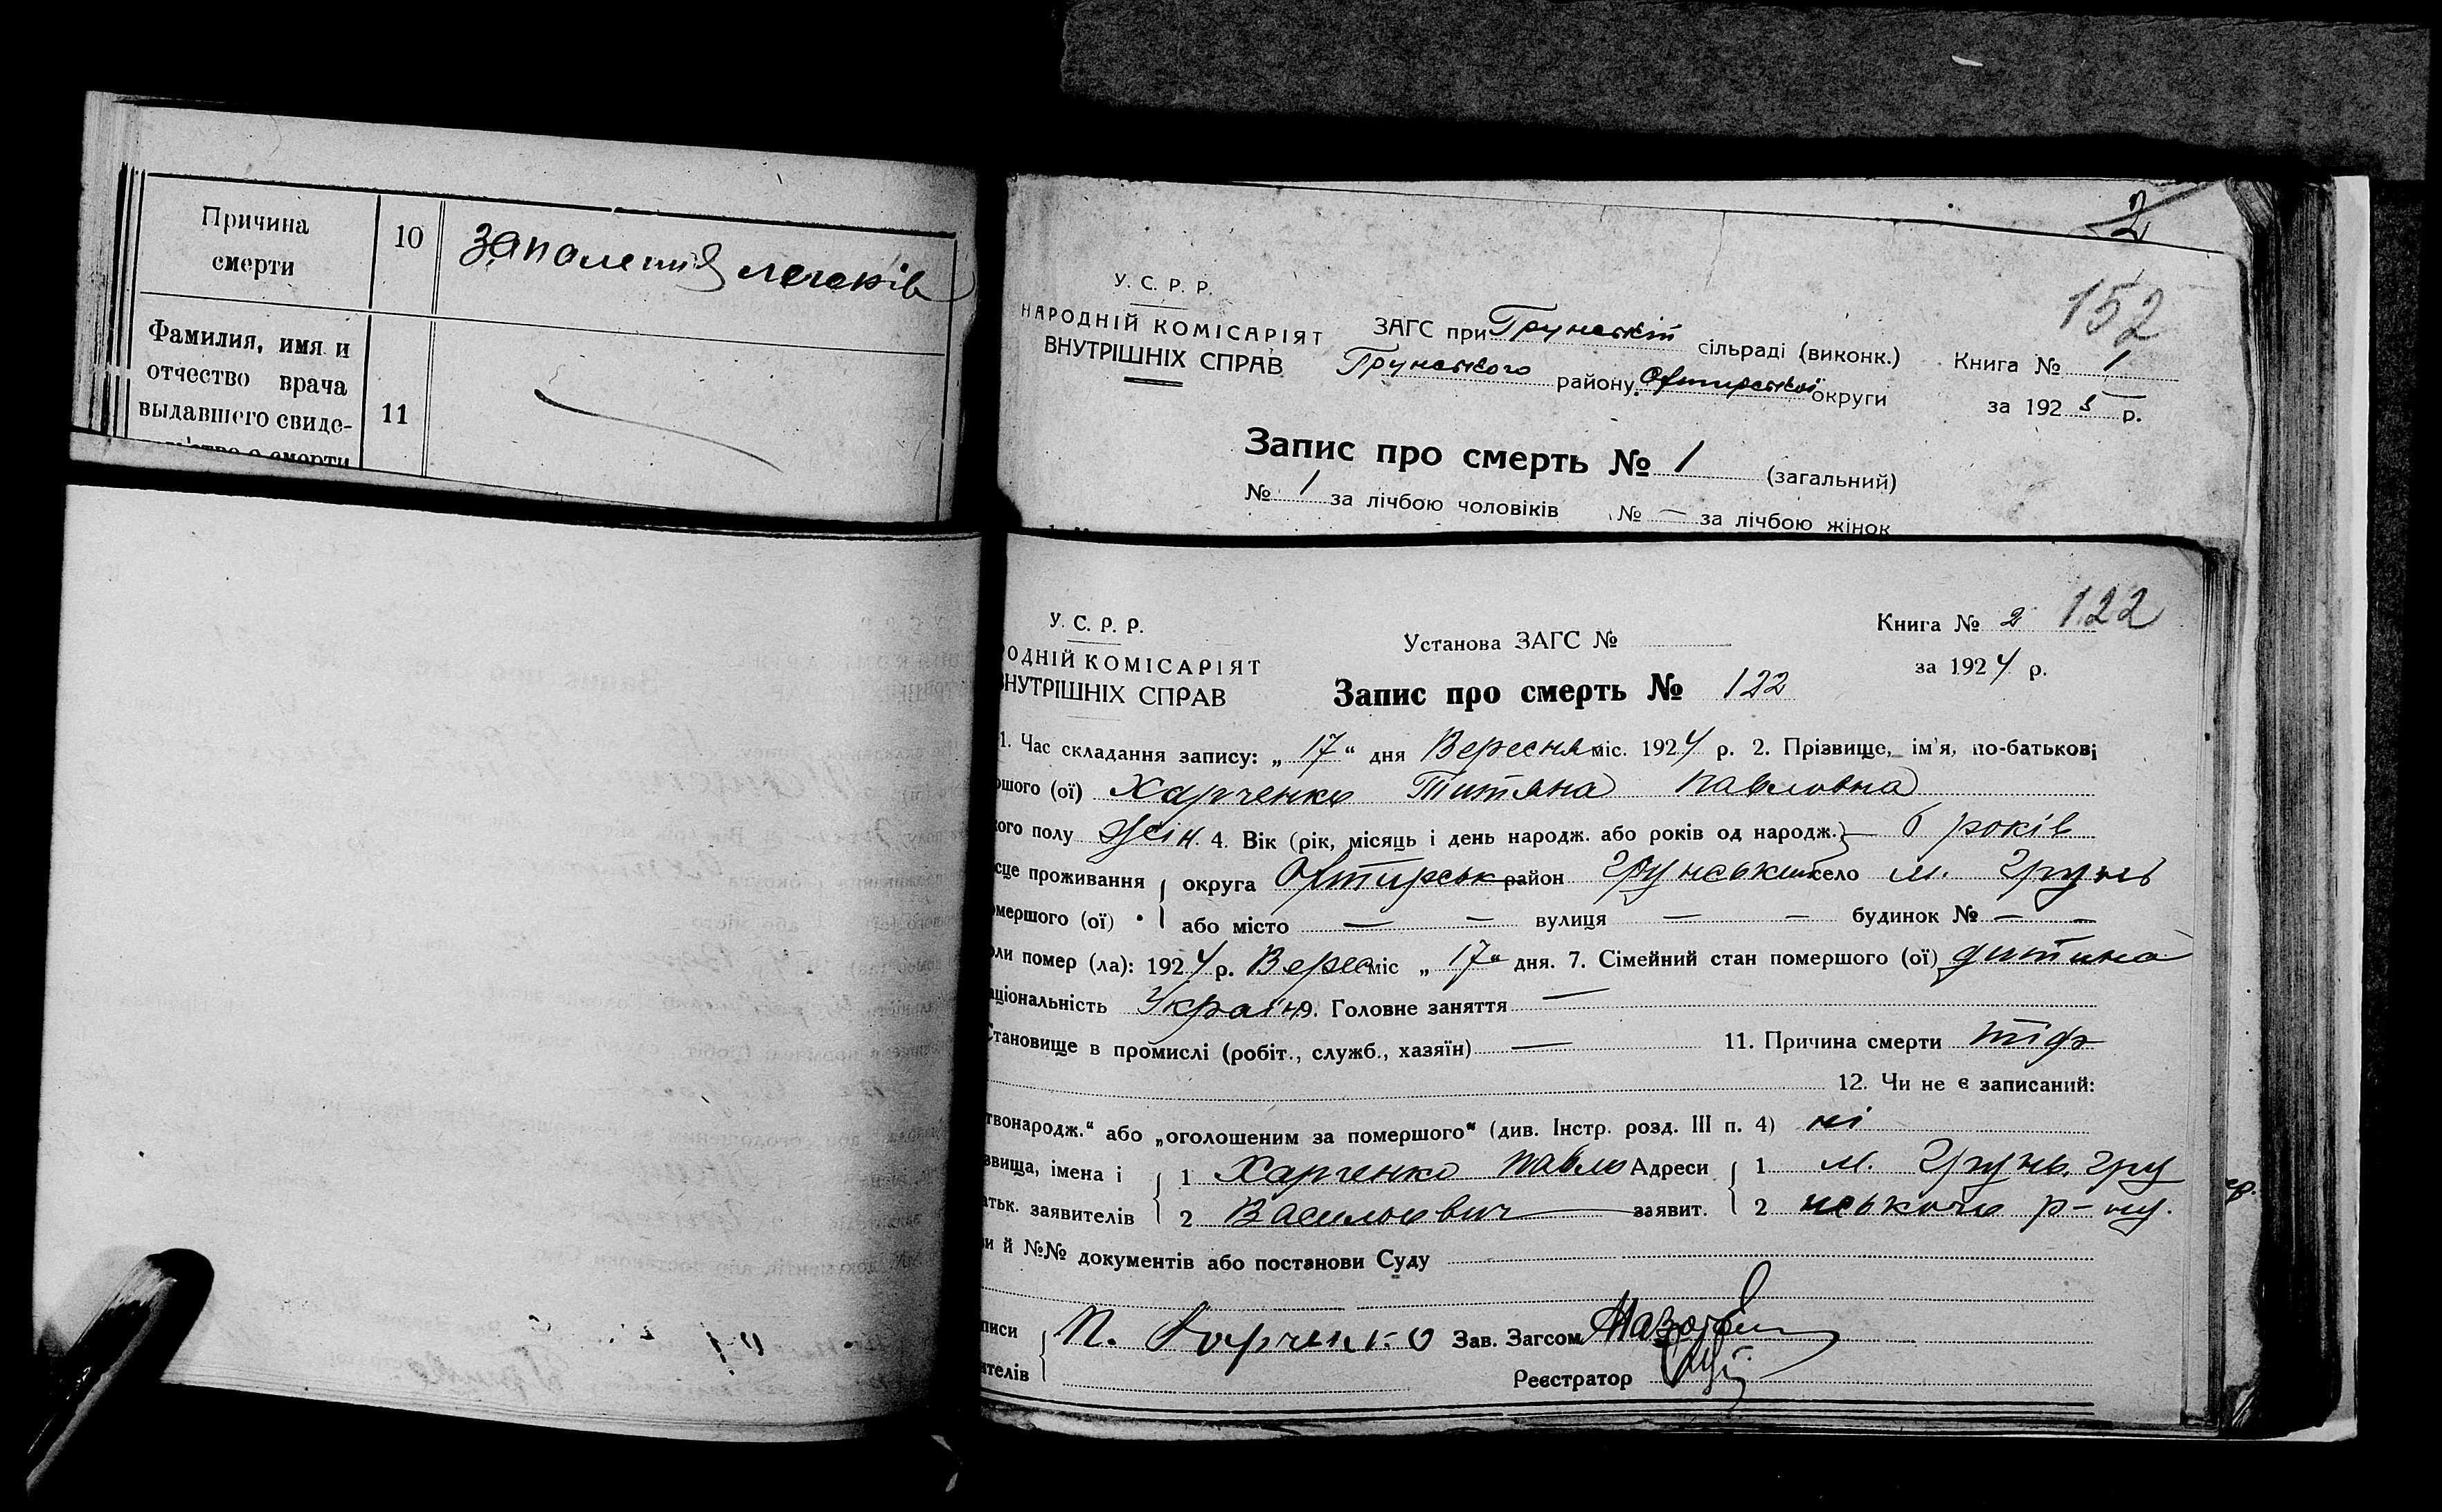 Причина
смерти
10
запалення легенів
Фамилия, имя и
отчество врача
выдавшего свиде-
11
о смерти
2
152
У. С. Р. Р.
НАРОДНІЙ КОМІСАРІЯТ
ВНУТРІШНІХ СПРАВ
ЗАГС при Грунській сільраді (виконк.)
Грунського району Охтирської округи
Книга № 1
за 1925 р.
Запис про смерть № 1 (загальний)
№ 1 за лічбою чоловіків № — за лічбою жінок
У. С. Р. Р.
ОДНІЙ КОМІСАРІЯТ
ВНУТРІШНІХ СПРАВ
Установа ЗАГС №
Книга № 2 122
за 1924 р.
Запис про смерть № 122
1. Час складання запису: „ 17 “ дня Вересня міс. 1924 р. 2. Прізвище, ім'я, по-батькові
ршого (ої) Харченко Титяна Павловна
кого полу жін. 4. Вік (рік, місяць і день народж. або років од народж.) — 6 років
сце проживання округа Охтирськ район Грунський село м. Грунь
омершого (ої) або місто — — вулиця — — будинок № — —
оли помер (ла): 1924 р. Верес міс „ 17 “ дня. 7. Сімейний стан помершого (ої) дитина
аціональність Україн 9. Головне заняття —
Становище в промислі (робіт., служб., хазяїн) — 11. Причина смерти тіф
12. Чи не є записаний:
твонародж.“ або „оголошеним за помершого“ (див. Інстр. розд. III п. 4) ні
звища, імена і 1 Харченко Павло Адреси 1 м. Грунь, Гру
атьк. заявителів 2 Васильович заявит. 2 нського р-ну.
ви й №№ документів або постанови Суду
писи П. Харченко Зав. Загсом
ителів Реєстратор